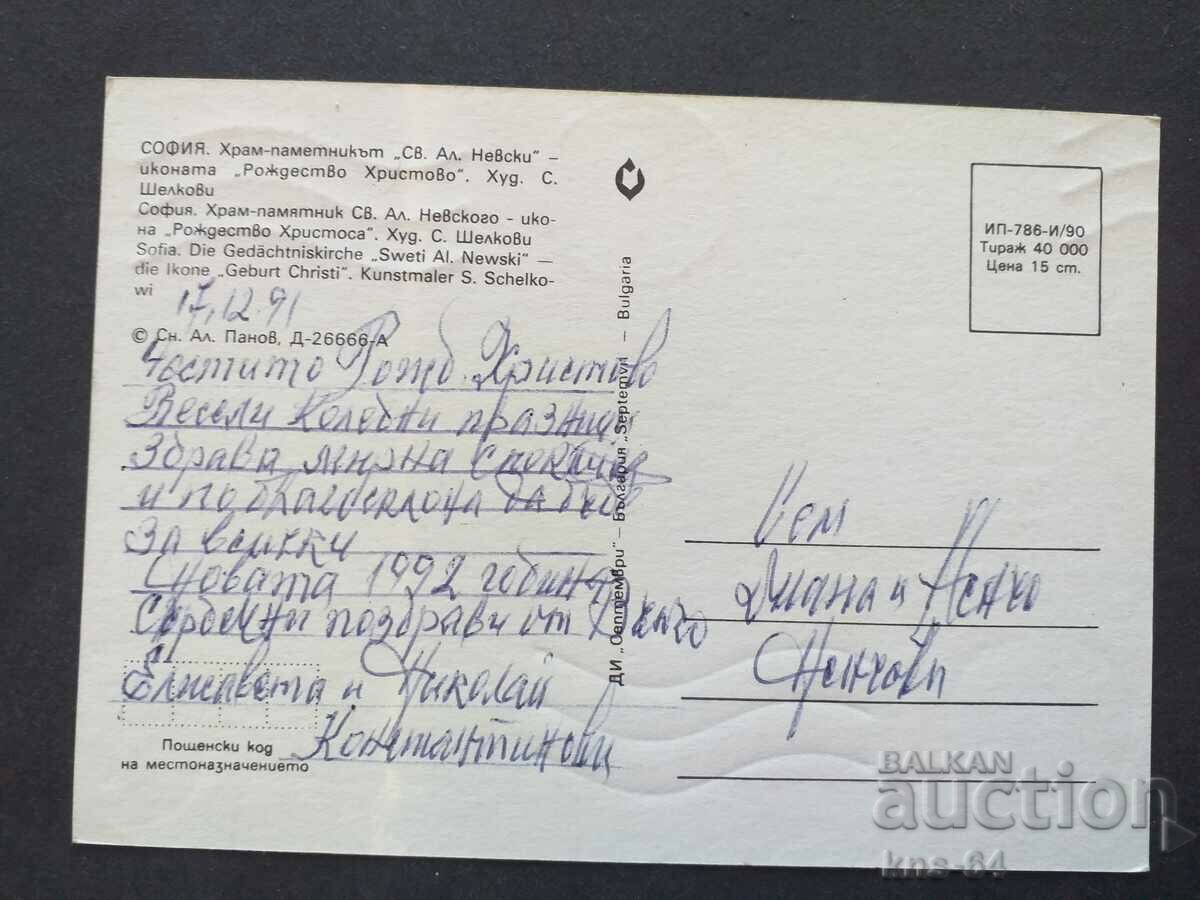 СОФИЯ. Храм-паметникът „Св. Ал. Невски" –
иконата „Рождество Христово". Худ. С.
Шелкови
София. Храм-памятник Св. Ал. Невского - ико-
на „Рождество Христоса". Худ. С. Шелкови
Sofia. Die Gedächtniskirche „Sweti Al. Newski" —
die Ikone „Geburt Christi". Kunstmaler S. Schelko-
wi
17.12.91
© Сн. Ал. Панов, Д-26666-А
Честито Рожд. Христово
Весели Коледни празници
Здрава мирна спокойна
и по благосклона
За всички
Новата 1992 година
Сърдечни поздрави от
Елисавета и Николай
Константинови
Пощенски код
на местоназначението
ДИ „Септември" — България „Septemvri — Bulgaria
ИП-786-И/90
Тираж 40 000
Цена 15 ст.
Сем
Диана и Ненчо
Ненчови
BALKAN
auction
kns-64